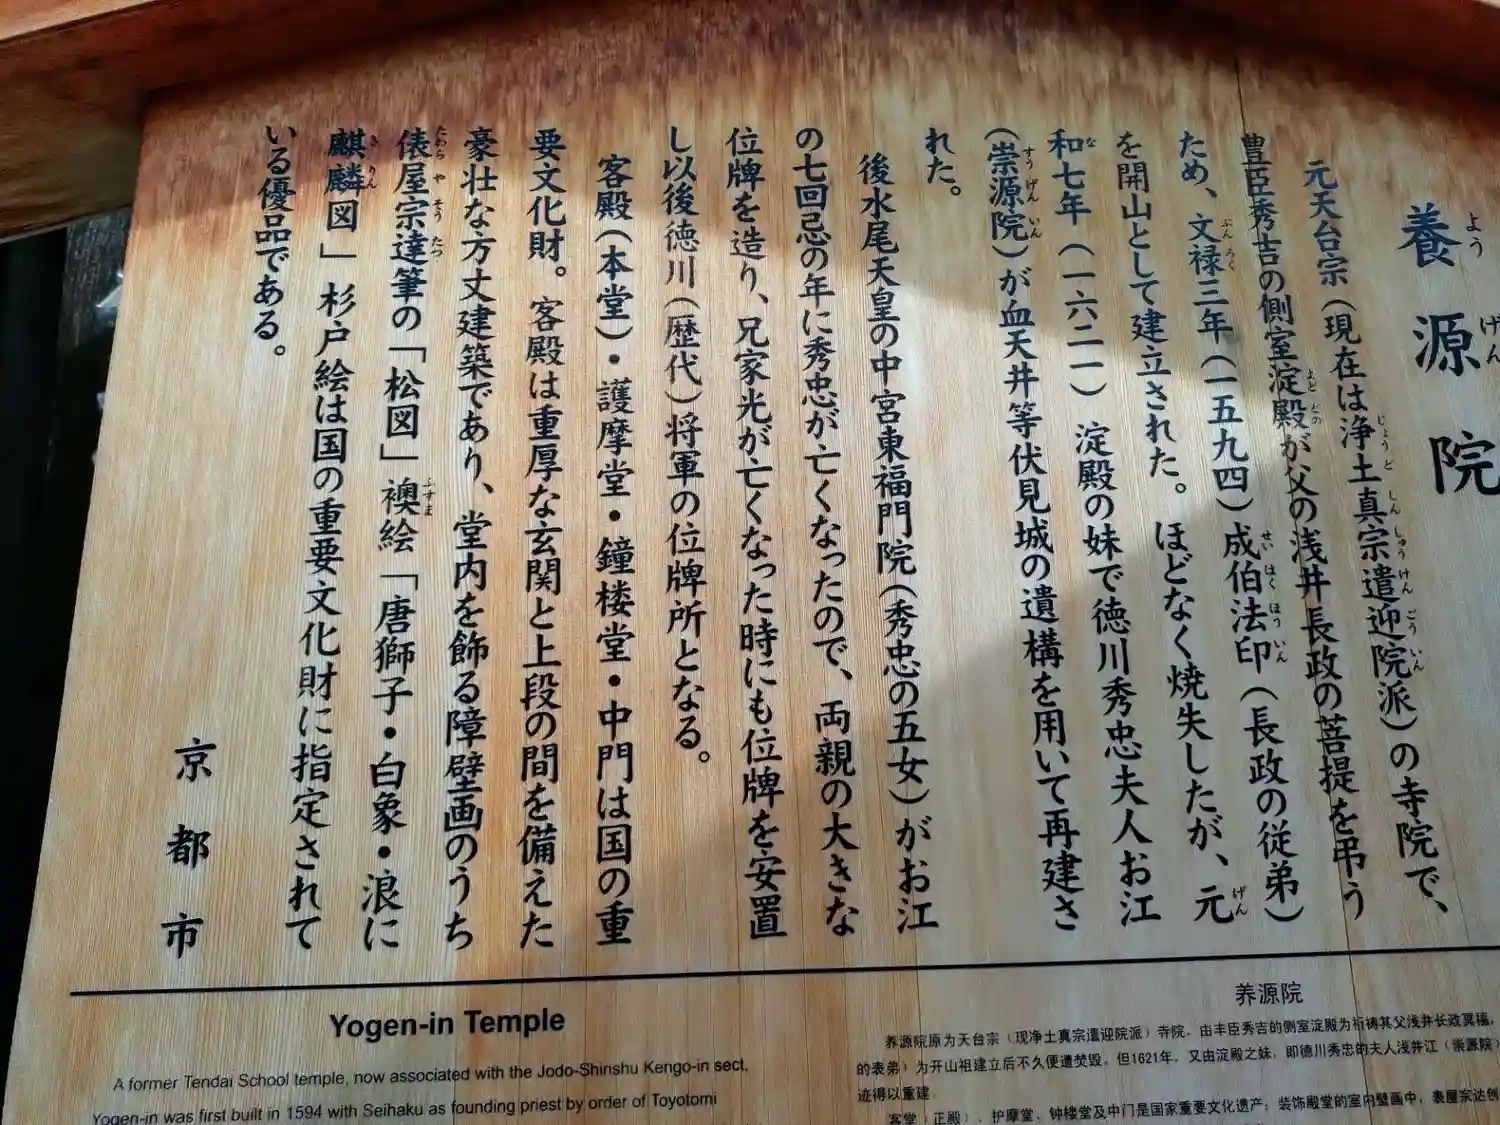 養源院
元天台宗（現在は浄土真宗遣迎院派）の寺院で、
豊臣秀吉の側室淀殿が父の浅井長政の菩提を弔う
ため、文禄三年（一五九四）成伯法印（長政の従弟）
を開山として建立された。ほどなく焼失したが、元
和七年（一六二一）淀殿の妹で徳川秀忠夫人お江
（崇源院）が血天井等伏見城の遺構を用いて再建さ
れた。
後水尾天皇の中宮東福門院（秀忠の五女）がお江
の七回忌の年に秀忠が亡くなったので、両親の大きな
位牌を造り、兄家光が亡くなった時にも位牌を安置
し以後徳川（歴代）将軍の位牌所となる。
客殿（本堂）・護摩堂・鐘楼堂・中門は国の重
要文化財。客殿は重厚な玄関と上段の間を備えた
豪壮な方丈建築であり、堂内を飾る障壁画のうち
俵屋宗達筆の「松図」襖絵「唐獅子・白象・浪に
麒麟図」杉戸絵は国の重要文化財に指定されて
いる優品である。
京都市
Yogen-in Temple
A former Tendai School temple, now associated with the Jodo-Shinshu Kengo-in sect,
Yogen-in was first built in 1594 with Seihaku as founding priest by order of Toyotomi
养源院
养源院原为天台宗（现净土真宗遣迎院派）寺院，由丰臣秀吉的侧室淀殿为祈祷其父浅井长政冥福，
的表弟）为开山祖建立后不久便遭焚毁。但1621年，又由淀殿之妹，即德川秀忠的夫人浅井江（崇源院）
迹得以重建
客堂（正殿）、护摩堂、钟楼堂及中门是国家重要文化遗产；装饰殿堂的室内壁画中，表屋宗达创